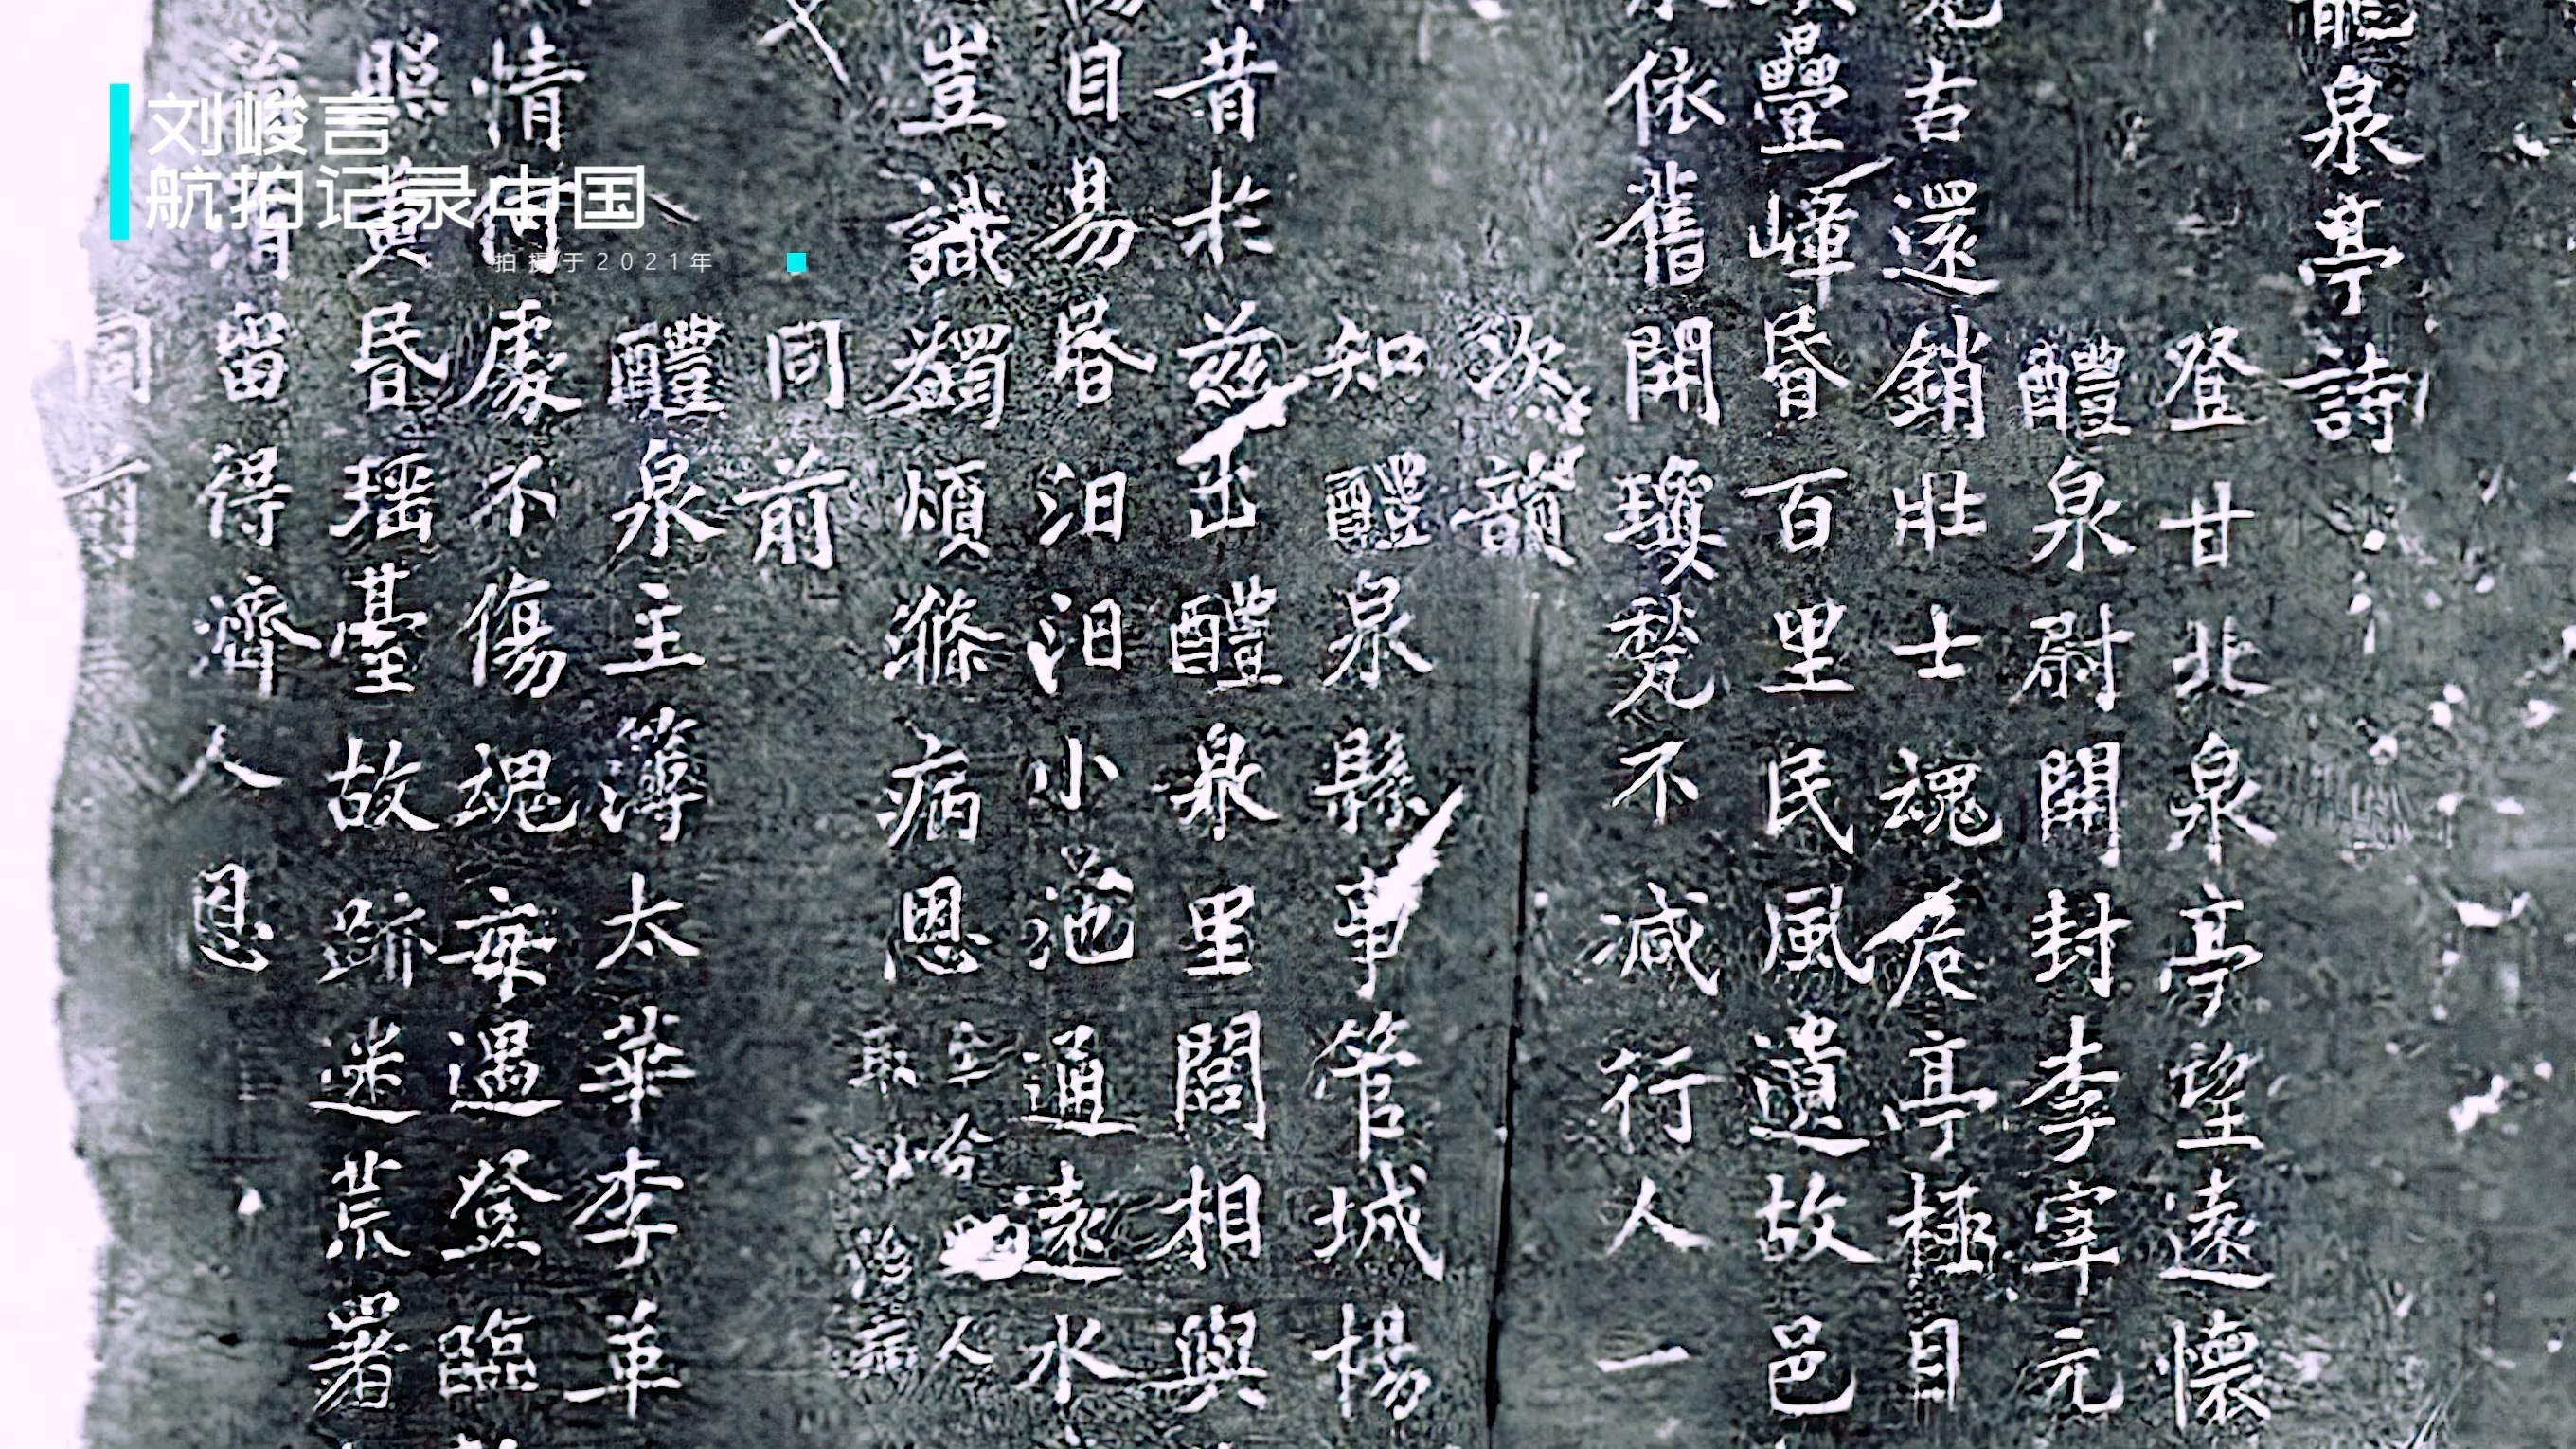 刘峻言
航拍记录中国
拍摄于2021年
泉亭詩
登甘北泉亭望遠懷
醴泉尉開封李宰元
古還銷壯士魂危亭極目
疊嶂昏百里民風遺故邑
依舊開瓊甃不減行人一
欲韻
知醴泉縣事管城楊
昔於茲出醴泉里閭相與
目易昏汩汩小池通遠水
豈識蠲煩滌病恩
人
取以治病
同前
醴泉主簿太華李革
情何處不傷魂每遇登臨
照黃昏瑶臺故跡迷荒署
留得濟人恩
同前